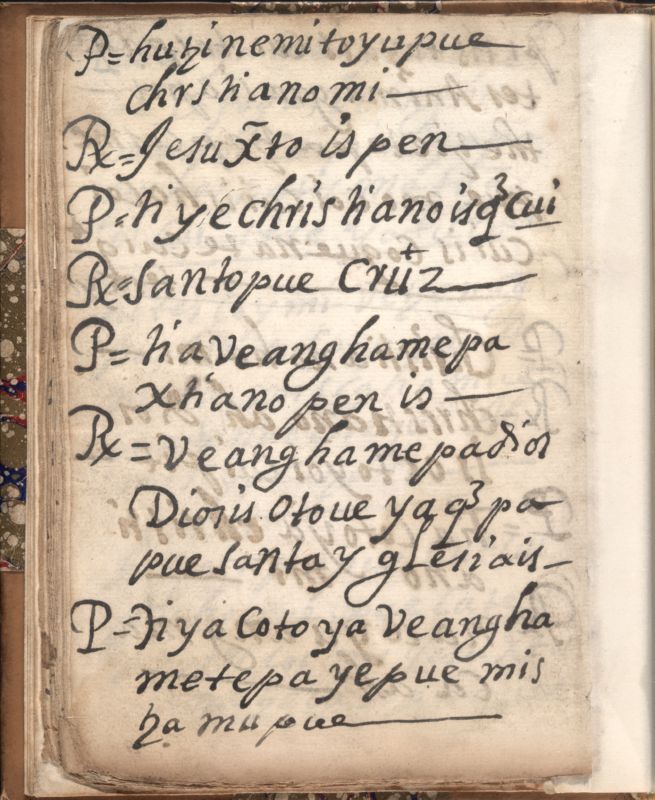 P= huɀinemitoyupue
chrstianomi—
Rx= Jesu x̃to is pen—
P= tiyechristianoisq³cui
Rx= santopue Crutz—
P= tiaveanghamepa
xtiano pen is—
Rx= veanghamepadios
Diosis otoue yaq³ pa
pue santa yglesiais—
P= tiya Cotoya Veangha
metepa yepue mis
ɀa mupue—